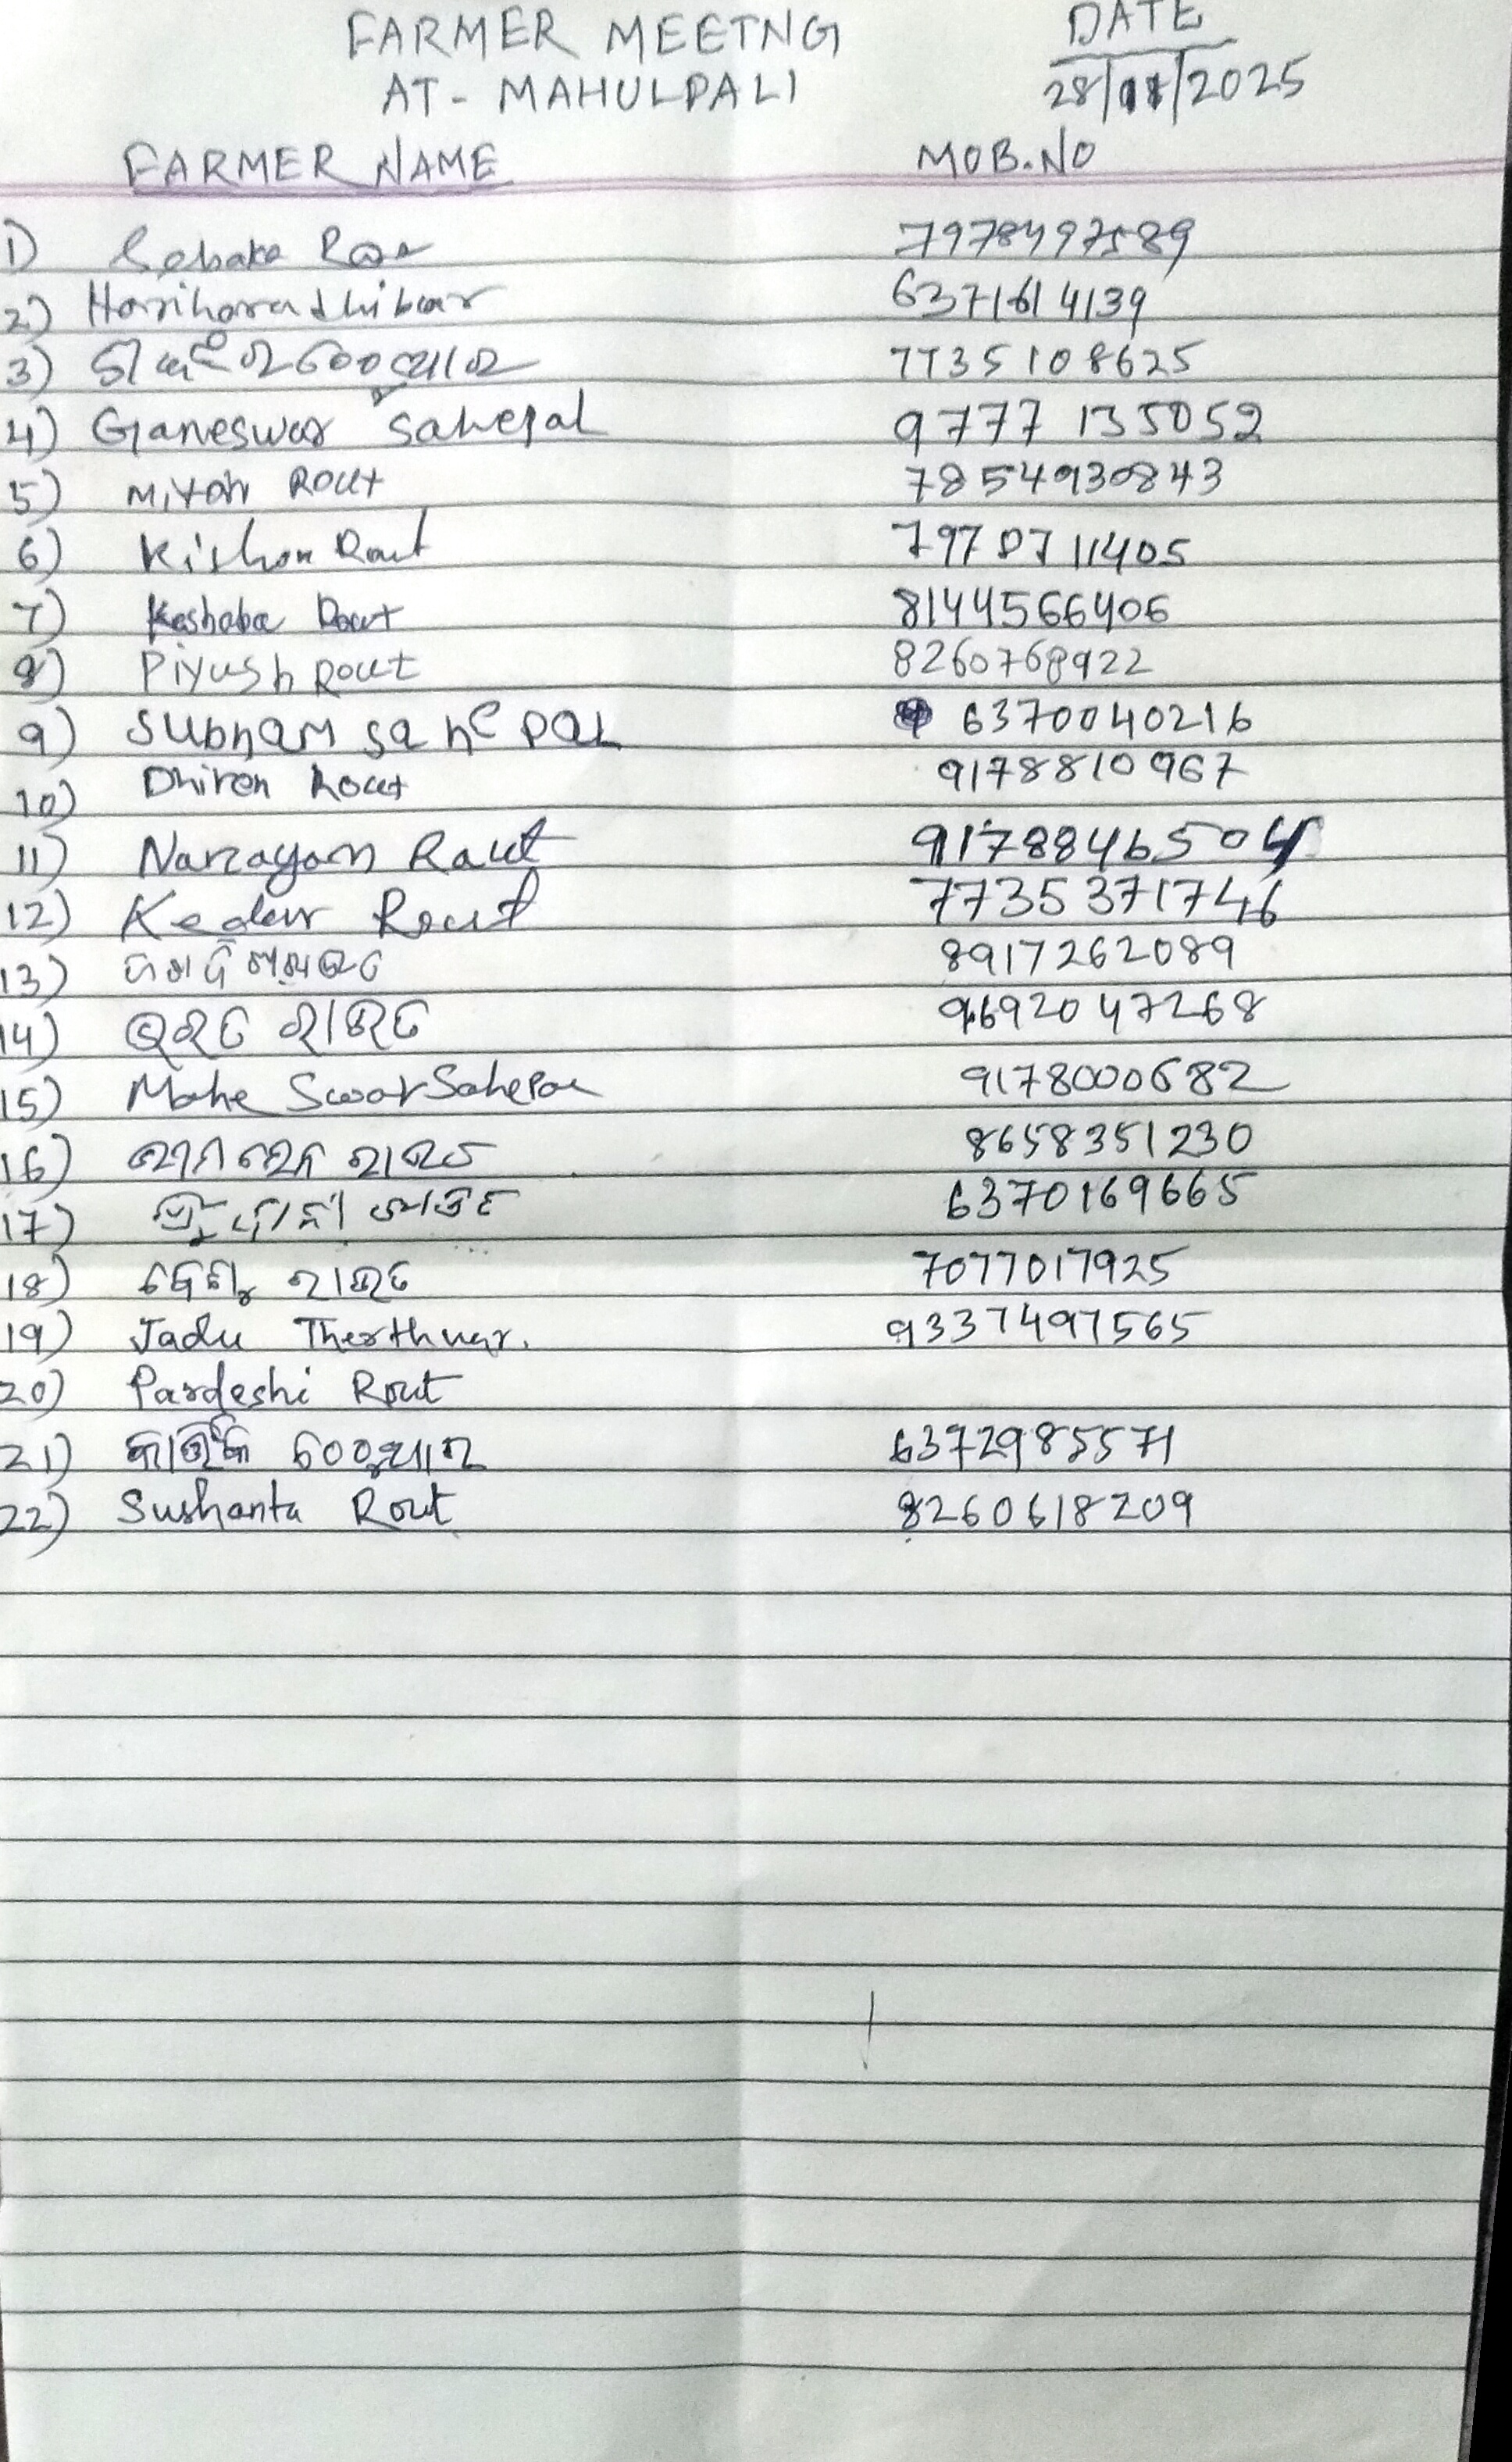 FARMER MEETNG
DATE
AT - MAHULPALI
28/11/2025
FARMER NAME
MOB.NO
1) Sebaka 7978497589
2) Hariharadhibar 6371614139
3) 7735108625
4) Ganeswar Sahepal 9777 135052
5) Miton Rout 7854930843
6) Kishor Rout 7978711405
7) Keshaba Rout 8144566406
8) Piyush Rout 8260768922
9) Subham sahepal 6370040216
10) Dhiren Rout 9178810967
11) Narayan Raut 9178846504
12) Kedar Rout 7735371746
13) 8917262089
14) ଭରତ ରାଉତ 9692047268
15) Mahe Swar Sahepal 9178000682
16) ରାଉତ 8658351230
17) 6370169665
18) ରାଉତ 7077017925
19) Jadu 9337497565
20) Pardeshi Rout
21) କାର୍ତ୍ତିକ 6372985571
22) Sushanta Rout 8260618209